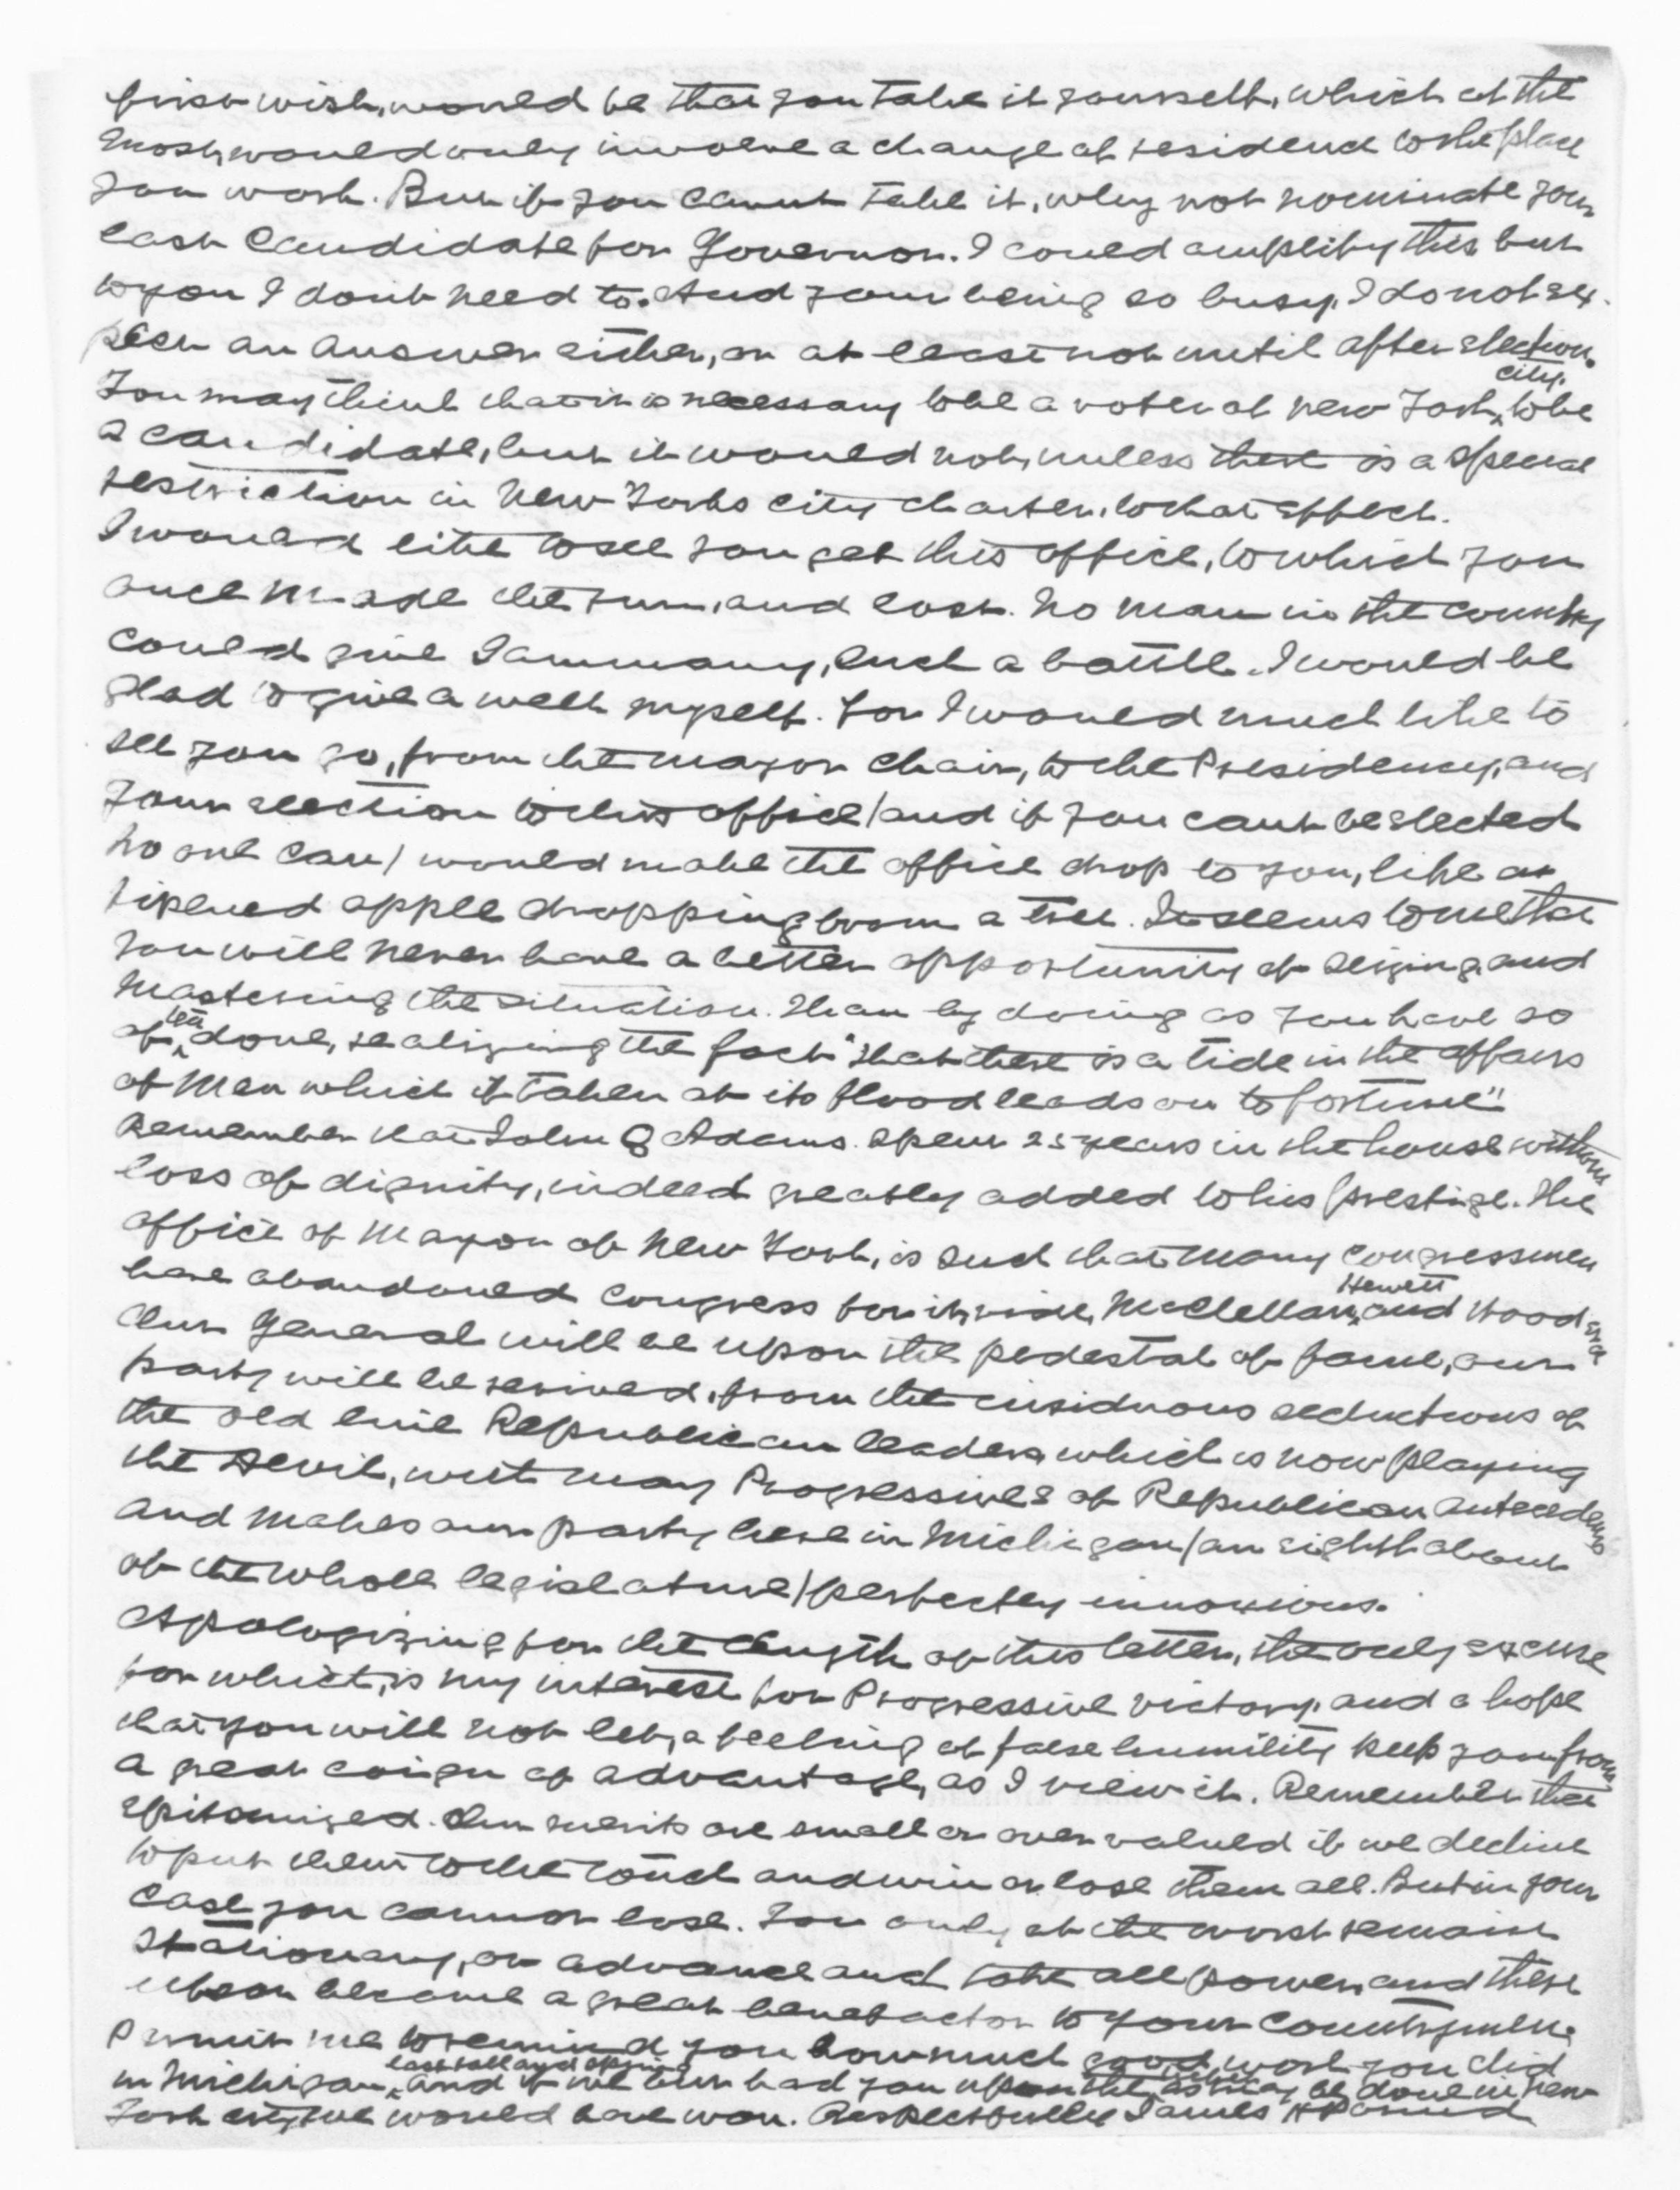 first wish, would be that you take it yourself, which at the
most, would only involve a change of residence to the place
you work. But if you cannot take it, why not nominate your
last candidate for Governor. I could amplify this but
to you I don't need to. And your being so busy, I do not ex-
pect an answer either, or at least not until after election.
You may think that it is necessary to be a voter of new York city, to be
a candidate, but it would not, unless there is a special
restriction in New Yorks city charter, to that effect.
I would like to see you get this office, to which you
once made the run, and lost. No man in the country
could give Tammany, such a battle. I would be
glad to give a week myself. For I would much like to
see you go, from the mayor chair, to the Presidency, and
your election to this office (and if you cant be elected
no one can) would make the office drop to you, like a
ripened apple dropping from a tree. It seems to me that
you will never have a better opportunity of seizing and
mastering the situation. Than by doing as you have so
often done, realizing the fact "that there is a tide in the affairs
of Men which if taken at its flood leads on to fortune"
Remember that John Q Adams. spent 25 years in the house without
loss of dignity, indeed greatly added to his prestige. The
office of Mayor of New York, is such that many congressmen
have abandoned congress for it, vide, McClellan, Hewett and Wood
Our General will be upon the pedestal of fame, our
party will be revived, from the insiduous seductions of
the old line Republican leaders, which is now playing
the Devil, with many Progressives of Republican antecedents
and makes our party here in Michigan (an eighth about
of the whole legislature) perfectly innoxious.
Apologizing for the length of this letter, the only excuse
for which, is my interest for Progressive victory, and a hope
that you will not let, a feeling of false humility keep you from
a great coign of advantage, as I view it. Remember that
epitomized. Our merits are small or over valued if we decline
to put them to the touch and win or lose them all. But in your
case you cannot lose. You only at the worst remain
stationary, or advance and take all power, and there
upon become a great benefactor to your countrymen.
Permit me to remind you how much good work you did
in Michigan, last fall and and if we but had you upon the as may be done in new
York city, we would have won. Respectfully James